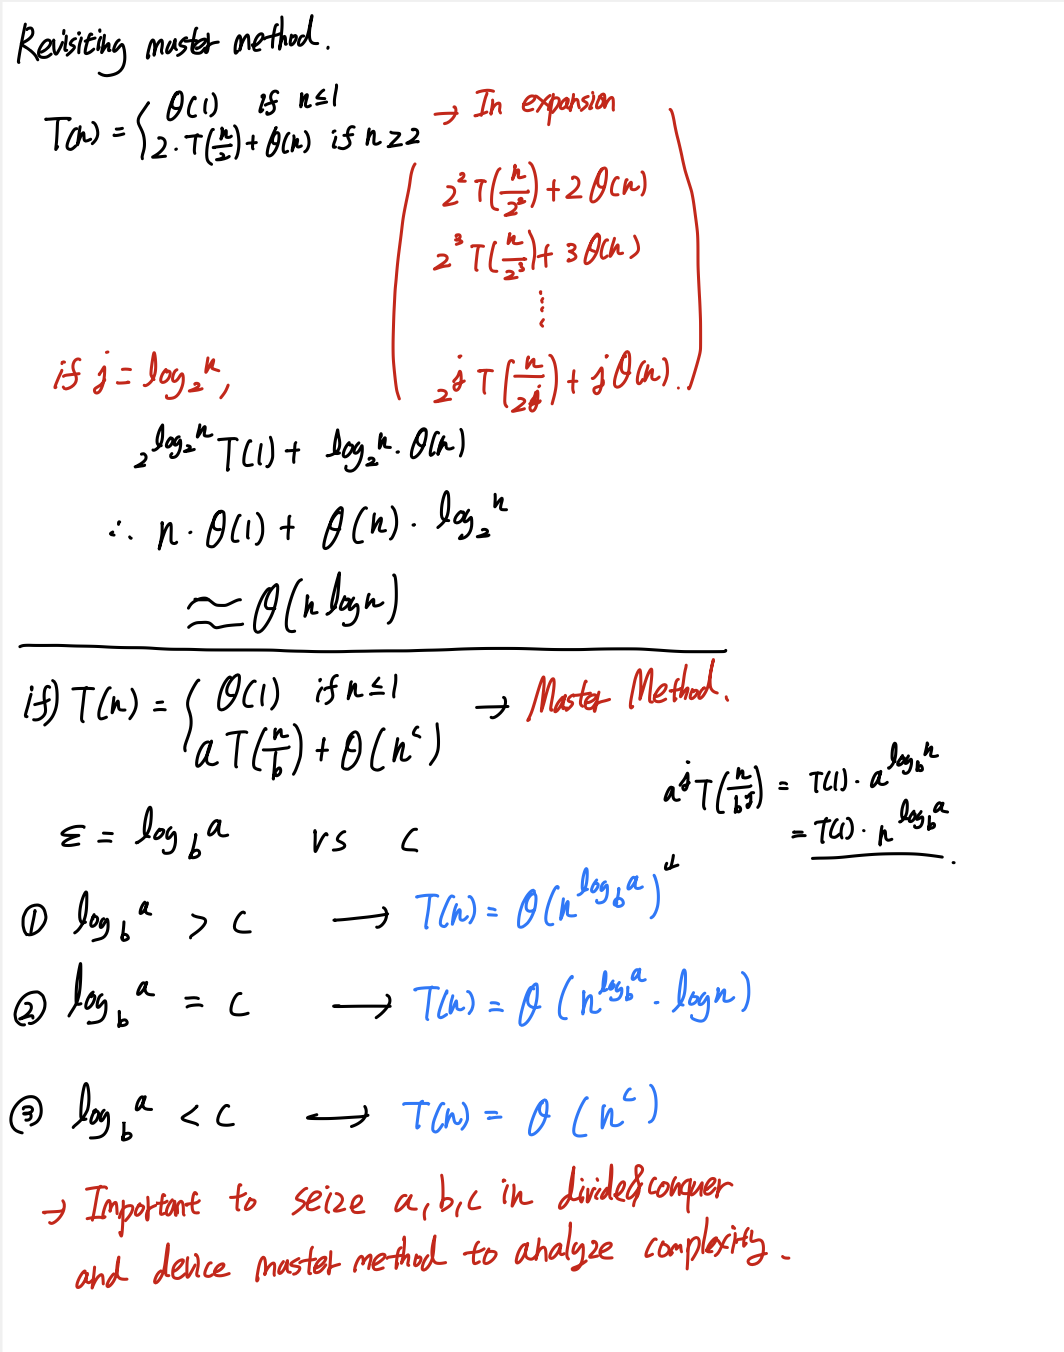 Revisiting master method.
T(n) = { θ(1) if n ≤ 1
2 · T(n/2) + θ(n) if n ≥ 2
→ In expansion
2² T(n/2²) + 2 θ(n)
2³ T(n/2³) + 3 θ(n)
⋮
2^j T(n/2^j) + j θ(n).
if j = log₂ n,
2^(log₂ n) T(1) + log₂ n · θ(n)
∴ n · θ(1) + θ(n) · log₂ n
≈ θ(n log n)
if) T(n) = { θ(1) if n ≤ 1
a T(n/b) + θ(n^c)
→ Master Method.
a^j T(n/b^j) = T(1) · a^(log_b n)
= T(1) · n^(log_b a).
ε = log_b a vs c
① log_b a > c → T(n) = θ(n^(log_b a))
② log_b a = c → T(n) = θ(n^(log_b a) · log n)
③ log_b a < c → T(n) = θ(n^c)
→ Important to seize a, b, c in divide&conquer
and device master method to analyze complexity.